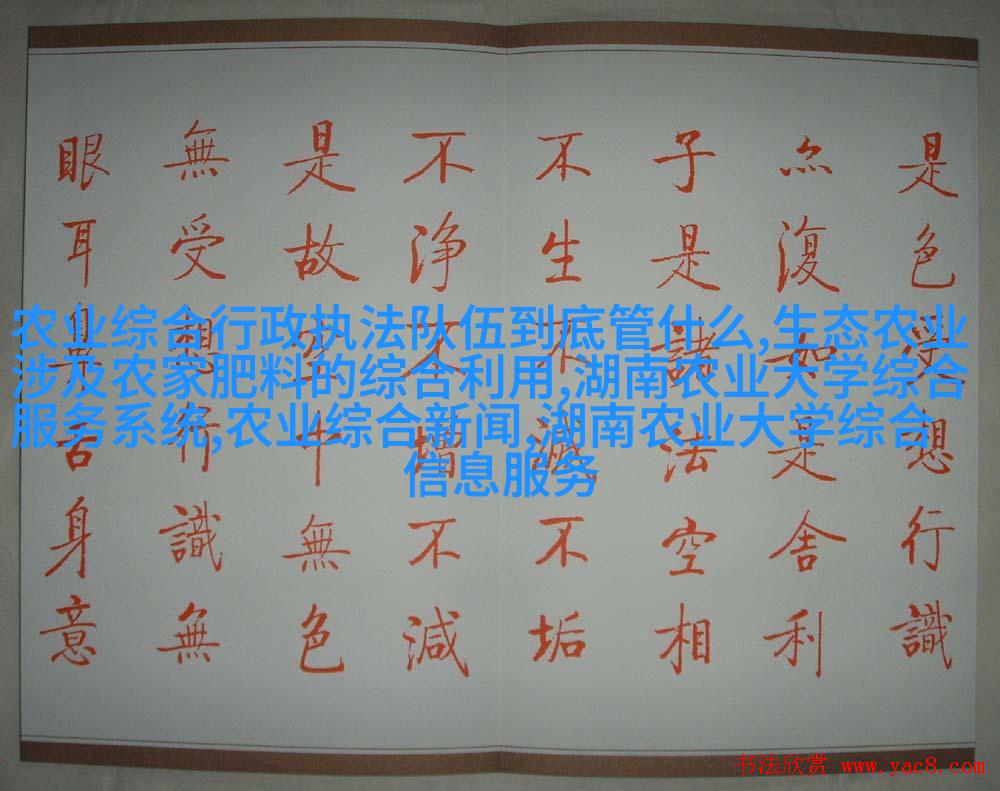 是色受想行識
亦復如是舍利
子是諸法空相
不生不滅不垢
不浄不增不減
是故空中無色
無受想行識無
眼耳鼻舌身意
农业综合行政执法队伍到底管什么,生态农业
涉及农家肥料的综合利用,湖南农业大学综合
服务系统,农业综合新闻,湖南农业大学综合
信息服务
书法欣赏 www.yac8.com